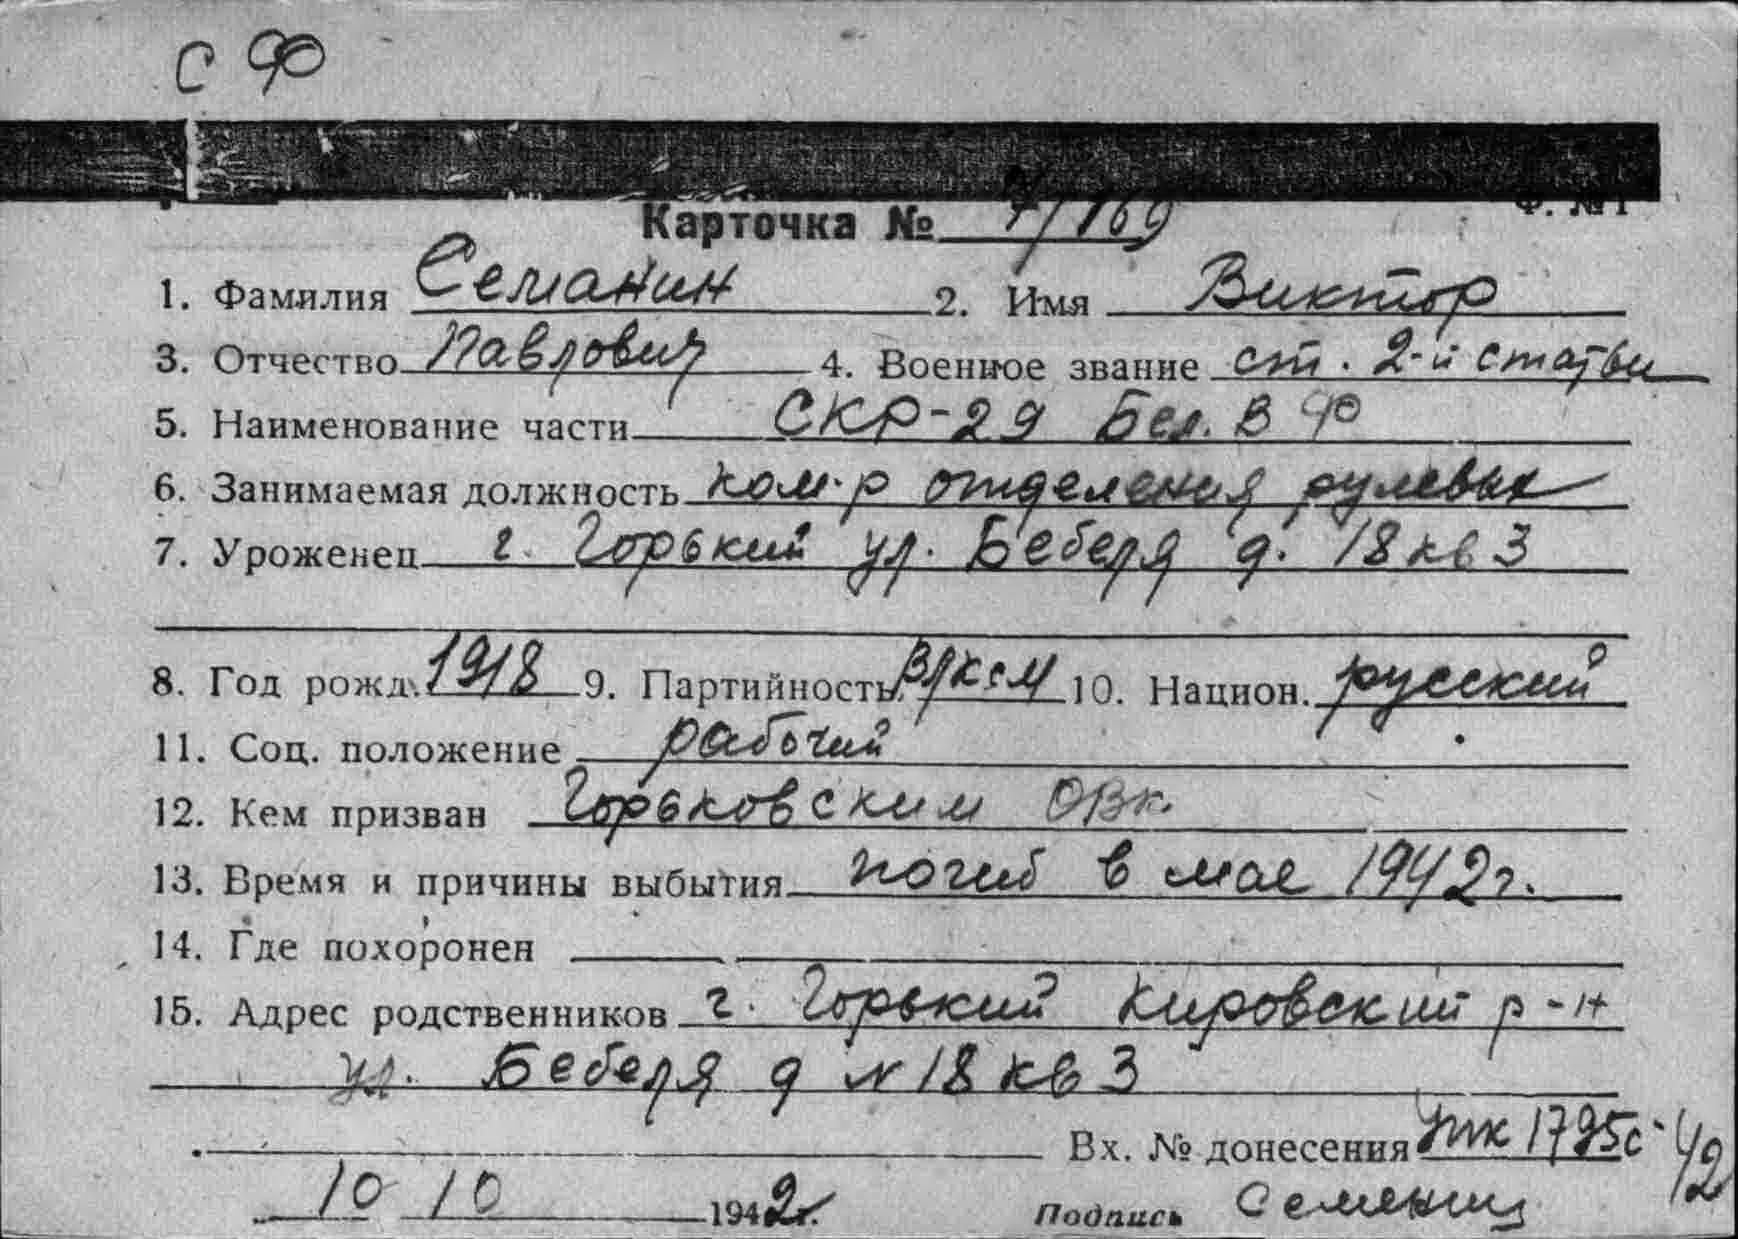 С Ф
Ф. № 1
Карточка № 7/169
1. Фамилия Семанин 2. Имя Виктор
3. Отчество Павлович 4. Военное звание ст. 2-й статьи
5. Наименование части СКР-29 Бел. В Ф
6. Занимаемая должность ком-р отделения рулевых
7. Уроженец г. Горький ул. Бебеля д. 18 кв 3
8. Год рожд. 1918 9. Партийность ВЛКСМ 10. Национ. русский
11. Соц. положение рабочий
12. Кем призван Горьковским ОВК.
13. Время и причины выбытия погиб в мае 1942 г.
14. Где похоронен
15. Адрес родственников г. Горький Кировский р-н
ул. Бебеля д N 18 кв 3
Вх. № донесения 1795с 42
10 10 1942 г.
Подпись